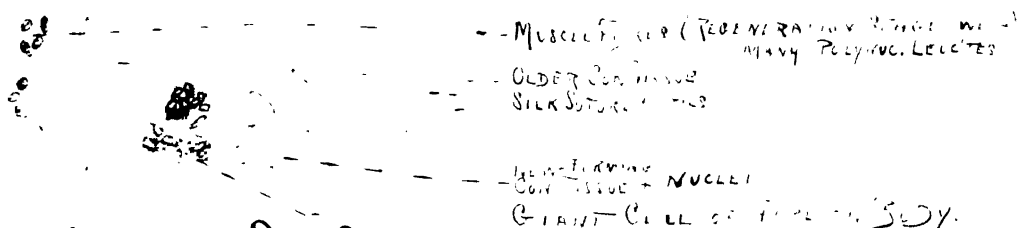 MUSCLE FIBER (REGENERATION STAGE WITH
MANY POLYNUC. LEUC'TES
OLDER CON TISSUE
SILK SUTURE
NEW-FORMING
CON TISSUE + NUCLEI
GIANT CELL OF FOREIGN BODY.